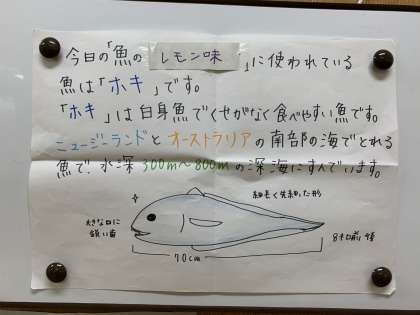 今日の「魚のレモン味」に使われている
魚は「ホキ」です。
「ホキ」は白身魚でくせがなく食べやすい魚です。
ニュージーランドとオーストラリアの南部の海でとれる
魚で、水深300m~800mの深海にすんでいます。
細長く先細った形
大きな口に
鋭い歯
70cm